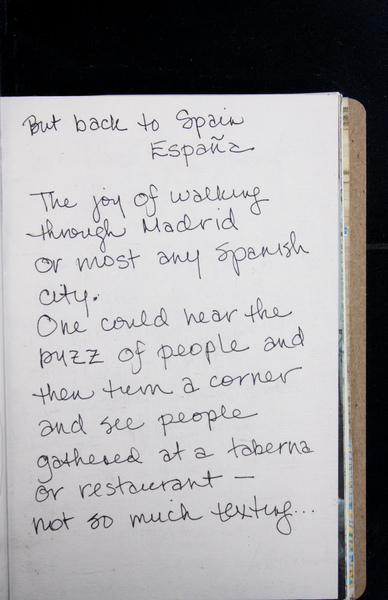 But back to Spain
España
The joy of walking
through Madrid
or most any Spanish
city.
One could hear the
buzz of people and
then turn a corner
and see people
gathered at a taberna
or restaurant —
not so much texting...